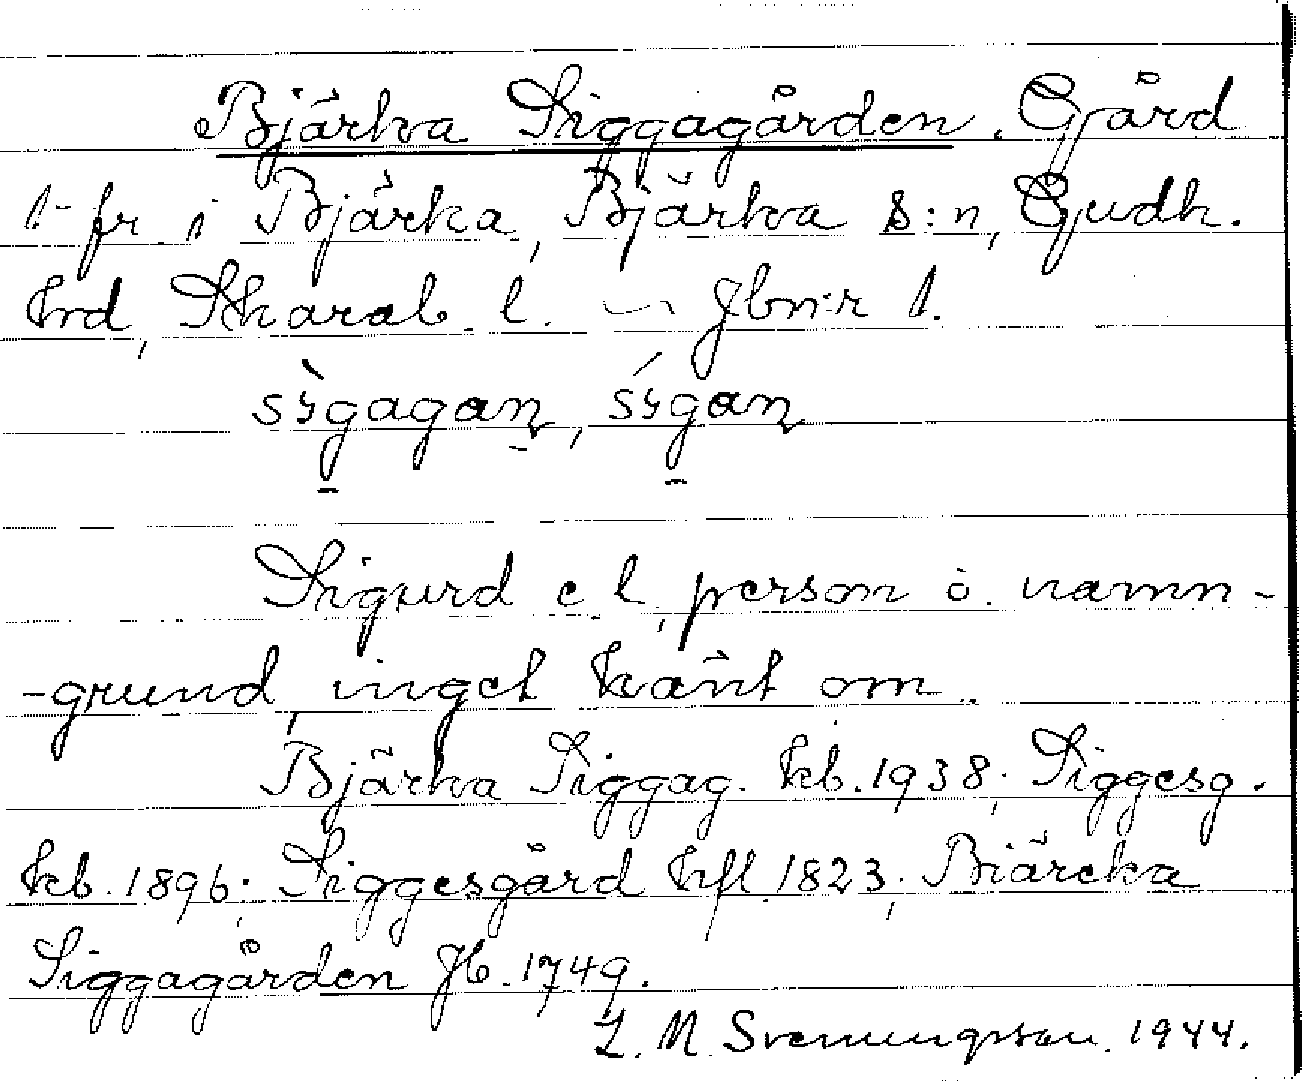 Bjärka Siggagården. Gård
1 fr i Bjärka, Bjärka s:n, Gudh.
hrd, Skarab. l. ~ Jbn:r 1.
sìgagaɳ, sígaɳ
Sigurd e l, person o. namn-
-grund, inget känt om.
Bjärka Siggag. kb. 1938; Siggesg.
kb. 1896; Siggesgård hfl 1823; Biärcka
Siggagården Jb. 1749.
L. M. Svenungsson. 1944.